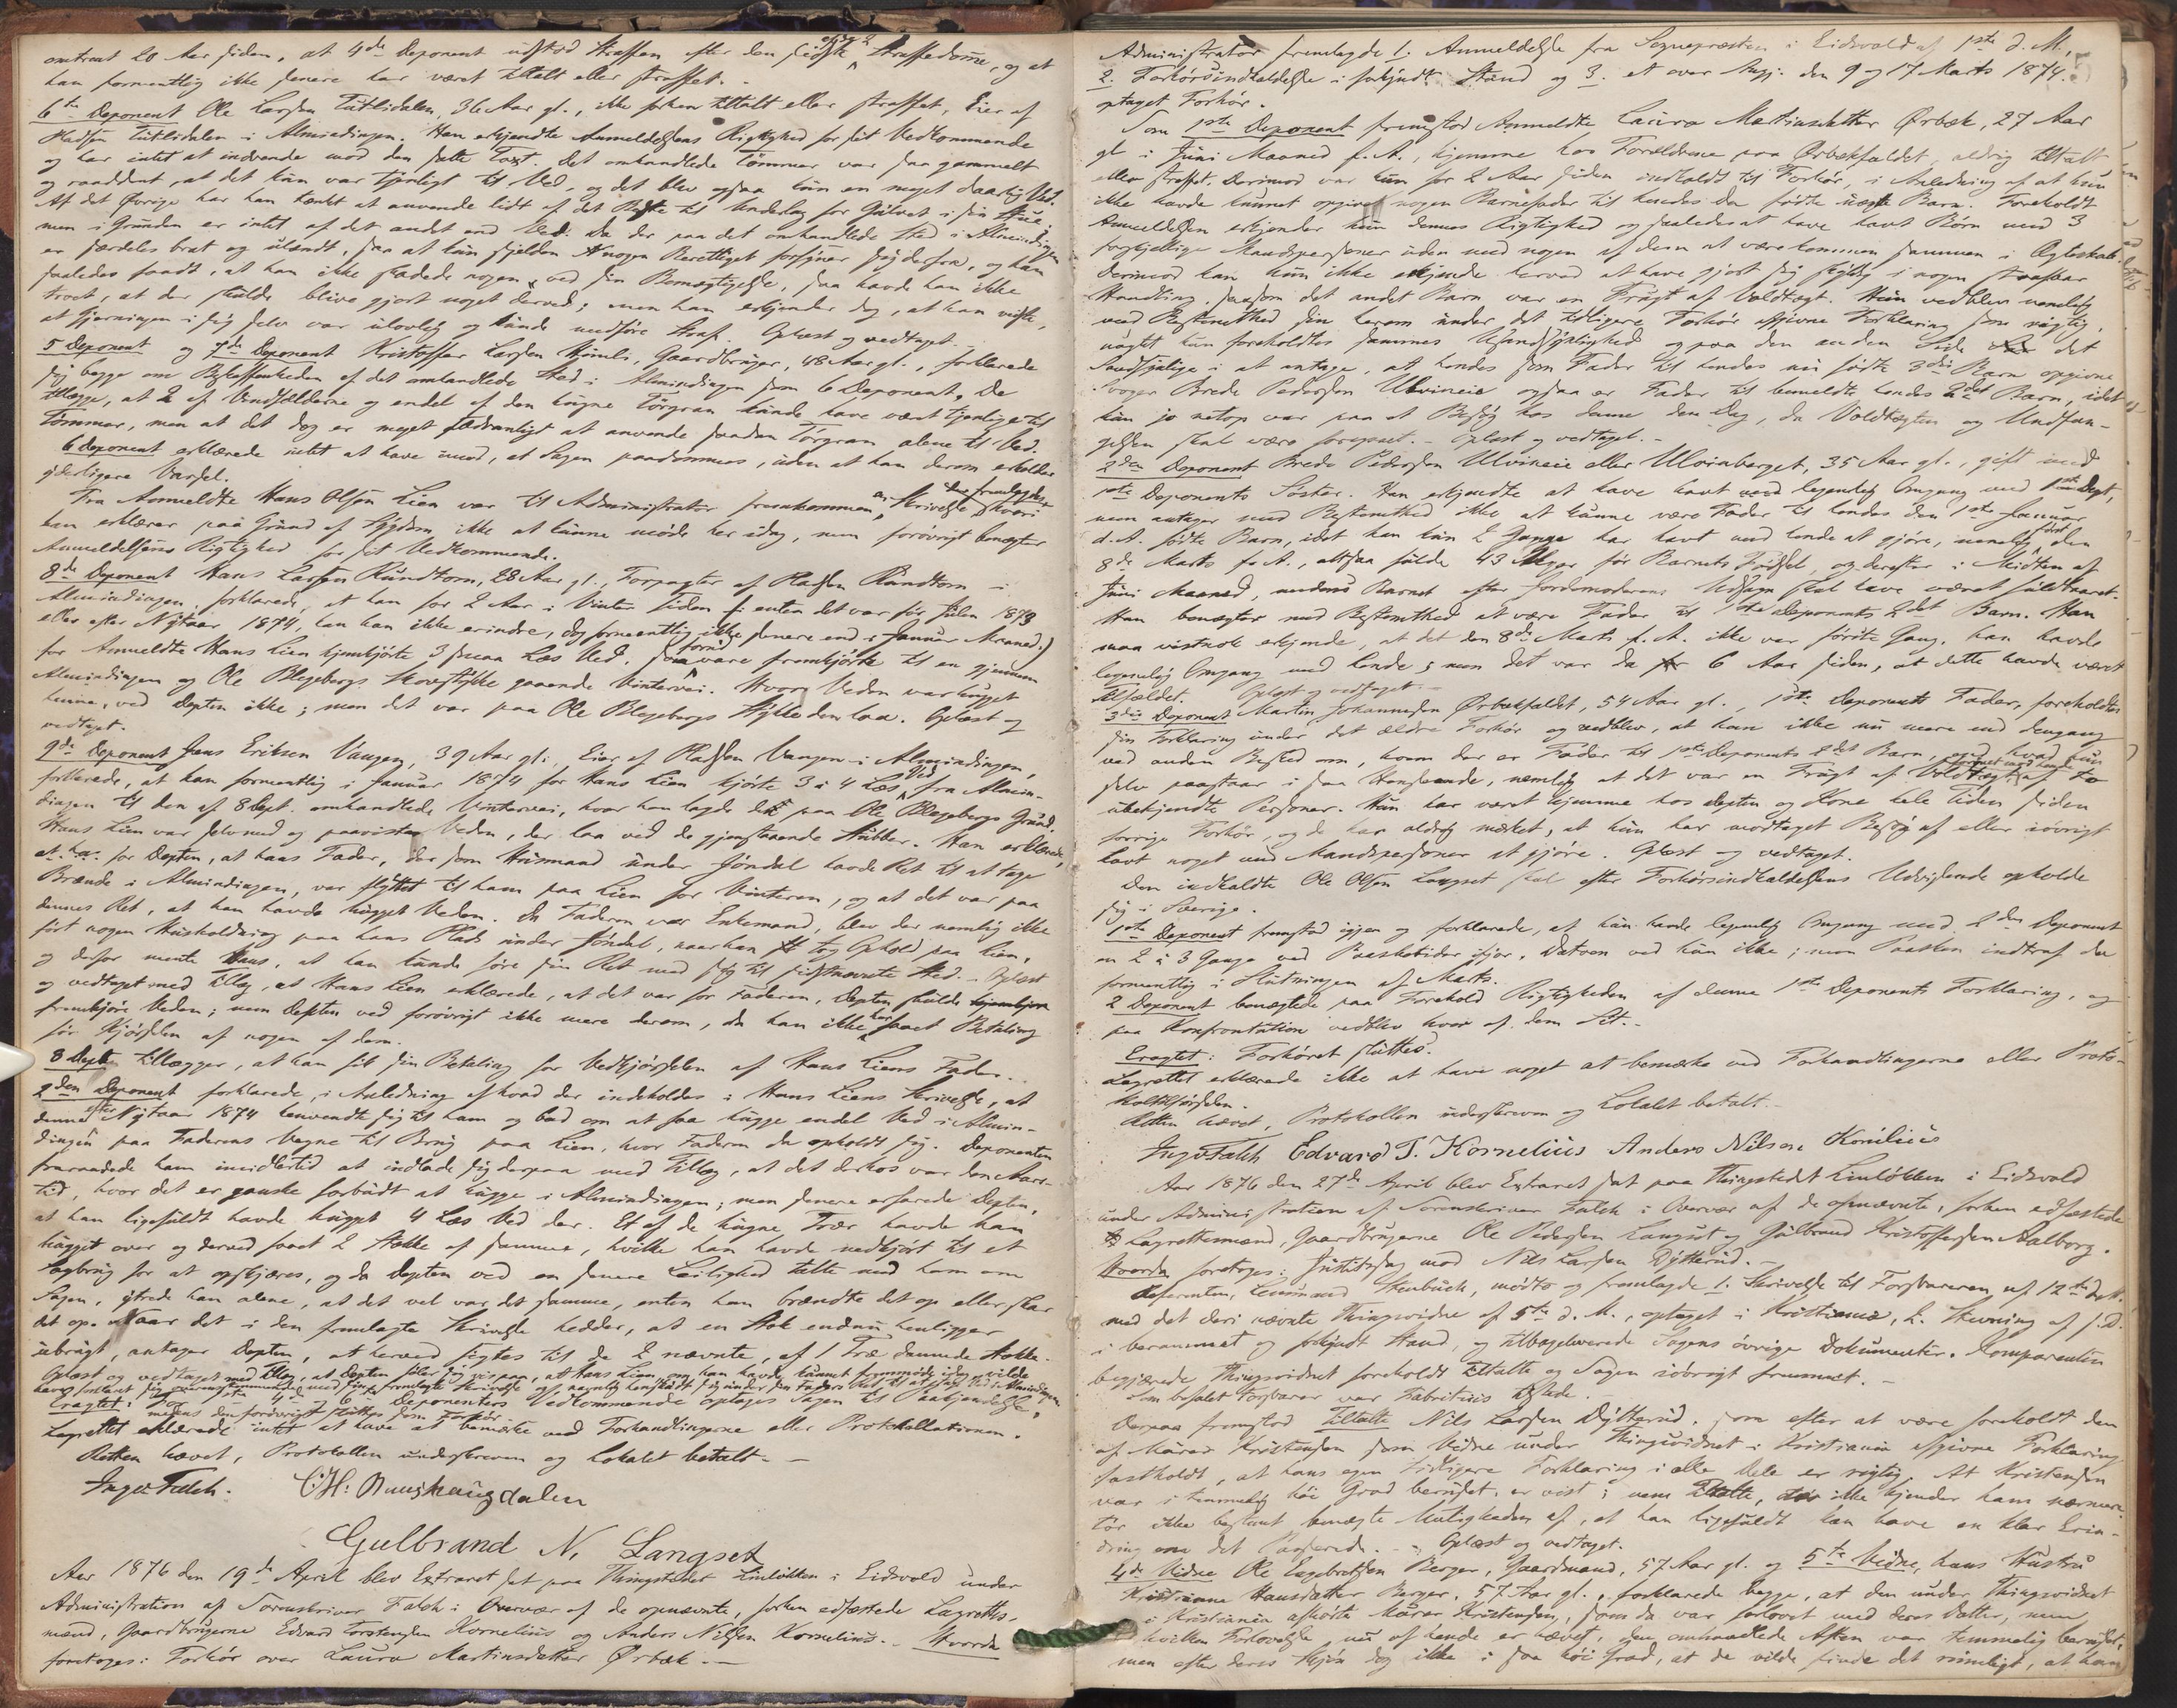 omtrent 20 Aar siden, at 4de Deponent udstod Straffen efter den sidste Straffedom̄e, og at
han formentlig ikke senere har været tiltalt eller straffet.
6te Deponent Ole Larsen Tutlidalen, 36 Aar gl., ikke forhen tiltalt eller straffet, Eier af
Pladsen Tutlidalen i Almindingen. Han erkjendte Anmeldelsens Rigtighed for sit Vedkommende
og har intet at indvende mod den satte Taxt. Det omhandlede Tømmer var saa gammelt
og raaddent, at det kun var tjenligt til Ved, og det blev ogsaa kun en meget daarlig Ved.
Af det Øvrige har han tænkt at anvende lidt af det Bedste til Underlag for Gulvet i sin Stue,
men i Grunden er intet af det andet end Ved. Da der paa det omhandlede Sted i Almindingen
er særdeles brat og ulændt, saa at kun sjelden nogen Beretliget forsyner sig derfra, og han
saaledes fandt, at han ikke skadede nogen ved sin Bemægtigelse, saa havde han ikke
troet, at der skulde blive gjort noget derved; men han erkjender dog, at han vidste,
at Gjerningen i sig selv var ulovlig og kunde medføre Straf. Oplæst og vedtaget.
5 Deponent og 7de Deponent Kristoffer Larsen Habmli, Gaardbruger, 48 Aar gl., forklarede
sig begge om Beskaffenheden af det omhandlede Sted i Almindingen som 6 Deponent. De
tillagde, at 2 af Vindfælderne og endel af den hugne Tørgran kunde have været tjenlige til
Tømmer, men at det dog er meget sædvanligt at anvende saadan Tørgran alene til Ved.
6 Deponent erklærede intet at have imod, at Sagen paadømmes, uden at han derom erholder
yderligere Varsel.
Fra Anmeldte Hans Olsen Lien var til Administrator fremkommen en Skrivelse, der fremlagdes, hvori
han erklærer paa Grund af Sygdom ikke at kunne møde her idag, men forøvrigt benægter
Anmeldelsens Rigtighed for sit Vedkommende.
8de Deponent Hans Larsen Rundtom, 28 Aar gl., Forpagter af Pladsen Rundtom i
Almindingen, forklarede, at han for 2 Aar i Vinter siden (enten det var før Julen 1873
eller efter Nytaar 1874, kan han ikke erindre, dog formentlig ikke senere end i Januar Maaned)
for Anmeldte Hans Lien hjemkjørte 3 smaa Læs Ved, som forud vare fremkjørte til en gjennem
Almindingen og Ole Blegebergs Skovstykke gaaende Vintervei. Hvor Veden var hugget
henne, ved Depten ikke; men det var paa Ole Blegebergs Stykke den laa. Oplæst og
vedtaget.
9de Deponent Jens Eriksen Vangen, 39 Aar gl., Eier af Pladsen Vangen i Almindingen,
forklarede, at han formentlig i Januar 1874 for Hans Lien kjørte 3 à 4 Læs Ved fra Almin-
dingen til den af 8 Dept. omhandlede Vintervei, hvor han lagde det paa Ole Blegebergs Grund.
Hans Lien var selv med og paaviste Veden, der laa ved de gjenstaaende Stubber. Han erklærede,
for Depten, at hans Fader, der som Husmand under Jøndal havde Ret til at tage
Brænde i Almindingen, var flyttet til ham paa Lien for Vinteren, og at det var paa
dennes Ret, at han havde hugget Veden. Da Faderen var Enkemand, blev der nemlig ikke
ført nogen Husholdning paa hans Plads under Jøndal, naar han tog Ophold paa Lien,
og derfor mente Hans, at han kunde føre sin Ret med sig til sidstnævnte Sted. Oplæst
og vedtaget med Tillæg, at Hans Lien erklærede, at det var for Faderen, Depten skulde
fremkjøre Veden; men Depten ved forøvrigt ikke mere derom, da han ikke har faaet Betaling
for Kjørselen af nogen af dem.
8 Dept. tillægger, at han fik sin Betaling for Vedkjørselen af Hans Liens Fader.
2den Deponent forklarede, i Anledning af hvad der indeholdes i Hans Liens Skrivelse, at
denne efter Nytaar 1874 henvendte sig til ham og bad om at faa hugge endel Ved i Almin-
dingen paa Faderens Vegne til Brug paa Lien, hvor Faderen da opholdt sig. Deponenten
fraraadede ham imidlertid at indlade sig derpaa med Tillæg, at det derhos var den Aars-
tid, hvor det er ganske forbudt at hugge i Almindingen; men senere erfarede Depten,
at han ligefuldt havde hugget 4 Læs Ved der. Et af de hugne Træer havde han
hugget over og derved faaet 2 Stokke af samme, hvilke han havde nedkjørt til et
Sagbrug for at opskjæres, og da Depten ved en senere Leilighed talte med ham om
Sagen, ytrede han alene, at det vel var det samme, enten han brændte det op eller skar
det op. Naar det i den fremlagte Skrivelse hedder, at en Stok endnu henligger
ubrugt, antager Depten, at herved sigtes til de 2 nævnte, af 1 Træ dannede Stokke.
Oplæst og vedtaget med Tillæg, at Depten føler sig vis paa, at Hans Lien, om han havde kunnet fremmøde idag, vilde
Eragtet: Deponenters Vedkommende optages Sagen til Paakjendelse,
medens den forøvrigt sluttes som Forhør.
Lagrettet erklærede intet at have at bemærke ved Forhandlingerne eller Protokollationen.
Retten hævet, Protokollen underskreven og Lokalet betalt.
Inger Falch. C.H. Ruushaugdalen
Gulbrand N. Langset
Aar 1876 den 19de April blev Extraret sat paa Thingstedet Linløkken i Eidsvold under
Administration af Sorenskriver Falch i Overvær af de opnævnte, forhen edfæstede Lagrettes-
mænd, Gaardbrugerne Edvard Torstensen Kornelius og Anders Nilsen Kornelius. Hvorda
foretoges: Forhør over Laura Martinsdatter Ørbæk.
Administrator fremlagde 1. Anmeldelse fra Sognepræsten i Eidsvold af 1ste d. M.,
2. Forhørsindkaldelse i forkyndt Stand og 3. et over den 9 og 17 Marts 1874
optaget Forhør.
Som 1ste Deponent fremstod Anmeldte Laura Martinsdatter Ørbæk, 27 Aar
gl. i Juni Maaned f. A., hjemme hos Forældrene paa Ørbækfaldet, aldrig tiltalt
eller straffet. Derimod var hun for 2 Aar siden indkaldt til Forhør, i Anledning af at hun
ikke havde kunnet opgive nogen Barnefader til hendes da fødte uægte Barn. Foreholdt
Anmeldelsen erkjender hun dennes Rigtighed og saaledes at have havt Børn med 3
forskjellige Mandspersoner uden med nogen af dem at være kommen sammen i Ægteskab.
Derimod kan hun ikke erkjende herved at have gjort sig skyldig i nogen strafbar
Handling, saasom det andet Barn var en Frugt af Voldtægt. Hun vedblev nemlig
med Bestemthed sin herom under det tidligere Forhør afgivne Forklaring som rigtig,
uagtet hun foreholdtes sammes Usandsynlighed og paa den anden Side det
Sandsynlige i at antage, at hendes som Fader til hendes nu fødte 3die Barn opgivne
Svoger Brede Pedersen Ulvineie ogsaa er Fader til bemeldte hendes 2det Barn, idet
hun jo netop var paa et Besøg hos denne den Dag, da Voldtægten og Undfan-
gelsen skal være foregaaet. - Oplæst og vedtaget. -
2den Deponent Brede Pedersen Ulvineie eller Ulvinberget, 35 Aar gl., gift med
1ste Deponents Søster. Han erkjendte at have havt legemlig Omgang med 1ste Dept,
men antager med Bestemthed ikke at kunne være Fader til hendes den 1ste Januar
d. A. fødte Barn, idet han kun 2 Gange har havt med hende at gjøre, nemlig først den
8de Marts f. A., altsaa fulde 43 Uger før Barnets Fødsel, og derefter i Midten af
Juni Maaned, medens Barnet efter Jordemoderens Udsagn skal have været fuldbaaret.
Han benægter med Bestemthed at være Fader til 1ste Deponents 2det Barn. Han
maa vistnok erkjende, at det den 8de Marts f. A. ikke var første Gang, han havde
legemlig Omgang med hende; men det var da 6 Aar siden, at dette havde været
Tilfældet. Oplæst og vedtaget.
3die Deponent Martin Johannesen Ørbækfaldet, 54 Aar gl., 1ste Deponents Fader, foreholdtes
sin Forklaring under det ældre Forhør og vedblev, at han ikke nu mere end dengang
ved anden Besked om, hvem der er Fader til 1ste Deponents 2det Barn, end hvad hun
selv paastaar i saa Henseende, nemlig at det var en Frugt af Voldtægt af to
ubekjendte Personer. Hun har været hjemme hos Depten og Kone hele Tiden siden
forrige Forhør, og de har aldrig mærket, at hun har modtaget Besøg af eller iøvrigt
havt noget med Mandspersoner at gjøre. Oplæst og vedtaget.
Den indkaldte Ole Olsen Langset skal efter Forhørsindkaldelsens Udvisende opholde
sig i Sverige.
1ste Deponent fremstod igjen og forklarede, at hun havde legemlig Omgang med 2den Deponent
en 2 à 3 Gange ved Paasketider ifjor. Datoen ved hun ikke; men Paasken indtraf da
formentlig i Slutningen af Marts.
2 Deponent benægtede paa Forehold Rigtigheden af denne 1ste Deponents Forklaring, og
paa Konfrontation vedblev hver af dem Sit.
Eragtet: Forhøret sluttes.
Lagrettet erklærede ikke at have noget at bemærke ved Forhandlingerne eller Proto-
koltilførselen.
Retten hævet, Protokollen underskreven og Lokalet betalt.
Inger Falch Edvard T. Kornelius Anders Nilsen Kornlius
Aar 1876 den 27de April blev Extraret sat paa Thingstedet Linløkken i Eidsvold
under Administration af Sorenskriver Falch i Overvær af de opnævnte, forhen edfæstede
Lagrettesmænd, Gaardbrugerne Ole Pedersen Langset og Gulbrand Kristoffersen Aalborg.
Hvorda foretoges: Justitssag mod Nils Larsen Dytterud.
Referenten, Lensmand Stenbuck, mødte og fremlagde 1. Skrivelse til Forsvareren af 12te d. M.
med det deri nævnte Thingsvidne af 5te d. M., optaget i Kristiania, 2. Stevning af s. D.
i berammet og forkyndt Stand, og tilbageleverede Sagens øvrige Dokumenter. Komparenten
begjærede Thingsvidnet foreholdt Tiltalte og Sagen iøvrigt fremmet.
Som befalet Forsvarer var Fabritius tilstede.
Derpaa fremstod Tiltalte Nils Larsen Dytterud, som efter at være foreholdt den
af Maren Kristensen som Vidne under Thingsvidnet i Kristiania afgivne Forklaring
fastholdt, at hans egen tidligere Forklaring i alle Dele er rigtig. At Kristensen
var i temmelig høi Grad beruset, er vist; men Tiltalte, ikke kjender ham nærmere,
tør ikke bestemt benægte Muligheden af, at han ligefuldt kan have en klar Erin-
dring om det Passerede. - Oplæst og vedtaget.
4de Vidne Ole Engebretsen Berger, Gaardmand, 57 Aar gl. og 5te Vidne, hans Hustru
Kristianne Hansdatter Berger, 57 Aar gl., forklarede begge, at den under Thingsvidnet
i Kristiania afhørte Maren Kristensen, som da var forlovet med deres Datter, men
hvilken Forlovelse nu af hende er hævet, den omhandlede Aften var temmelig beruset,
men efter deres Skjøn dog ikke i saa høi Grad, at de vilde finde det rimeligt, at han